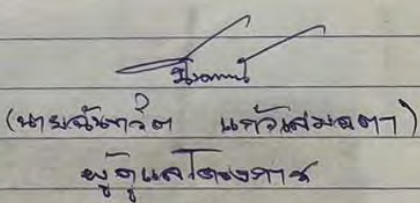 (นายฉันทวิต แก้วเสมอตา)
ผู้ดูแลโครงการ